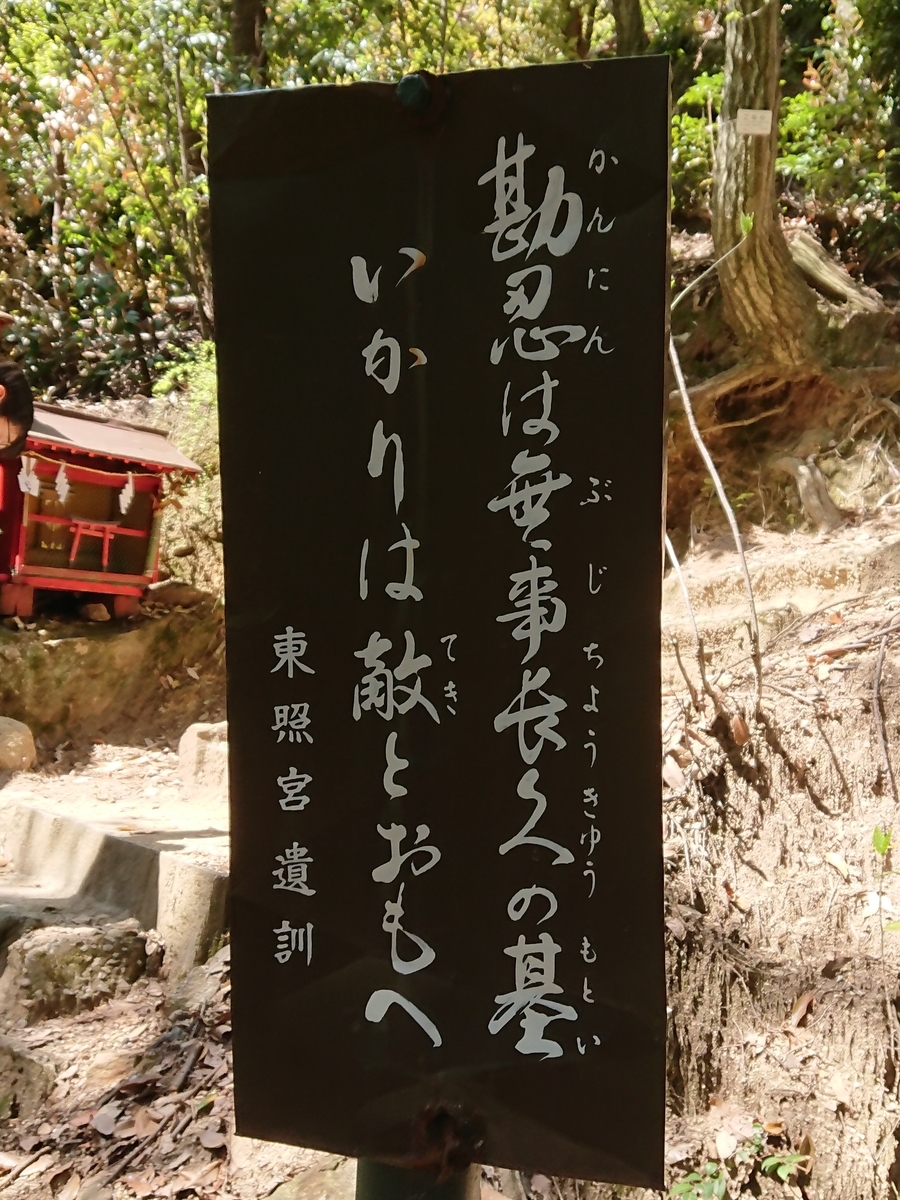 勘忍は無事長久の基
かんにん ぶじちょうきゅう もとい
いかりは敵とおもへ
てき
東照宮遺訓